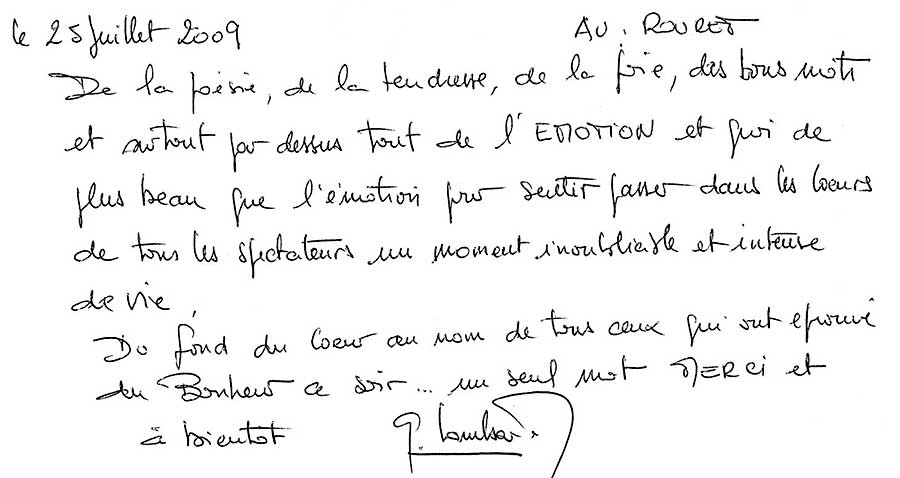 le 25 Juillet 2009 AU. ROURET
De la poésie, de la tendresse, de la joie, des bons mots
et surtout par dessus tout de l'EMOTION et quoi de
plus beau que l'émotion pour sentir passer dans les coeurs
de tous les spectateurs un moment inoubliable et intense
de vie.
Du fond du coeur au nom de tous ceux qui ont eprouvé
du Bonheur ce soir... un seul mot MERCI et
à bientot